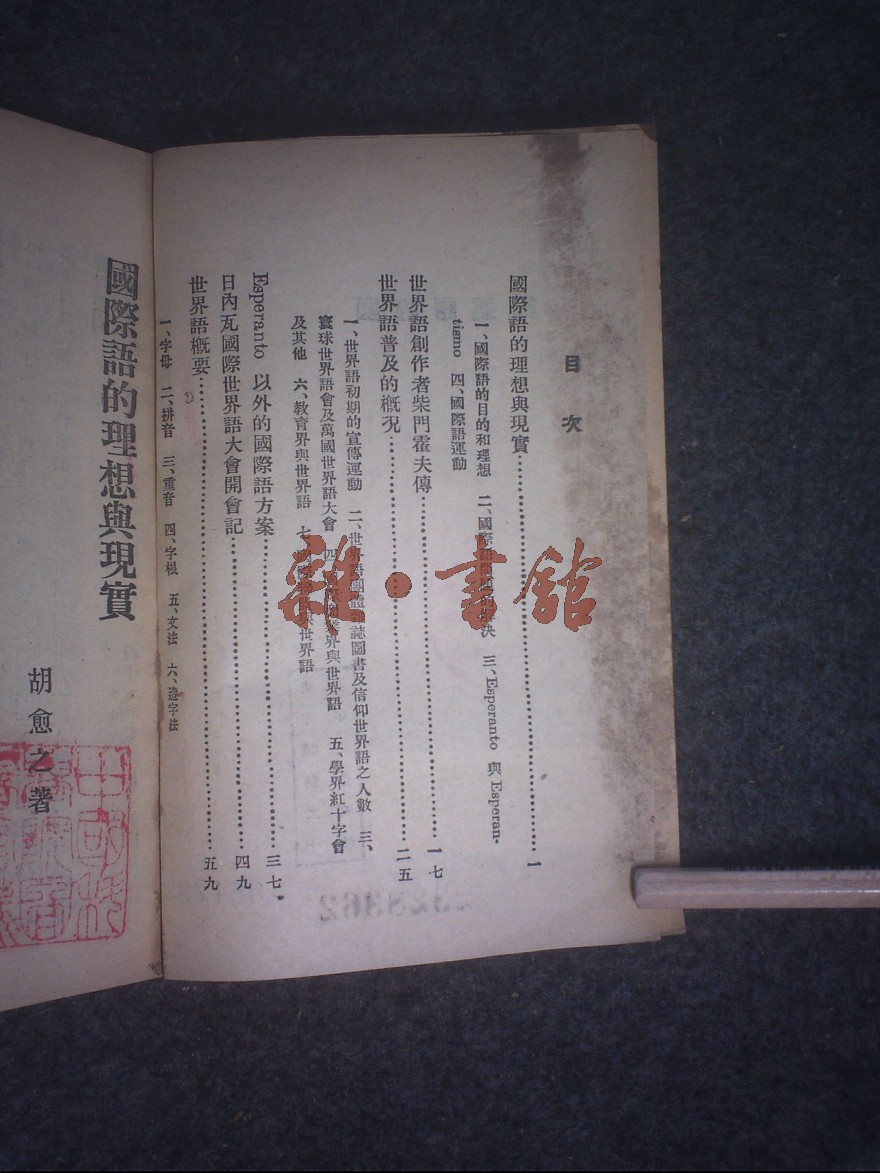 目次
國際語的理想與現實 一
一、國際語的目的和理想 二、國際語 決 三、Esperanto 與 Esperan-
tismo 四、國際語運動
世界語創作者柴門霍夫傳 一七
世界語普及的概況 二五
一、世界語初期的宣傳運動 二、世界語團體雜誌圖書及信仰世界語之人數 三、
寰球世界語會及萬國世界語大會 四、 界與世界語 五、學界紅十字會
及其他 六、教育界與世界語 七、 與世界語
Esperanto 以外的國際語方案 三七
日內瓦國際世界語大會開會記 四九
世界語概要 五九
一、字母 二、拼音 三、重音 四、字根 五、文法 六、造字法
國際語的理想與現實
胡愈之著
雜·書館